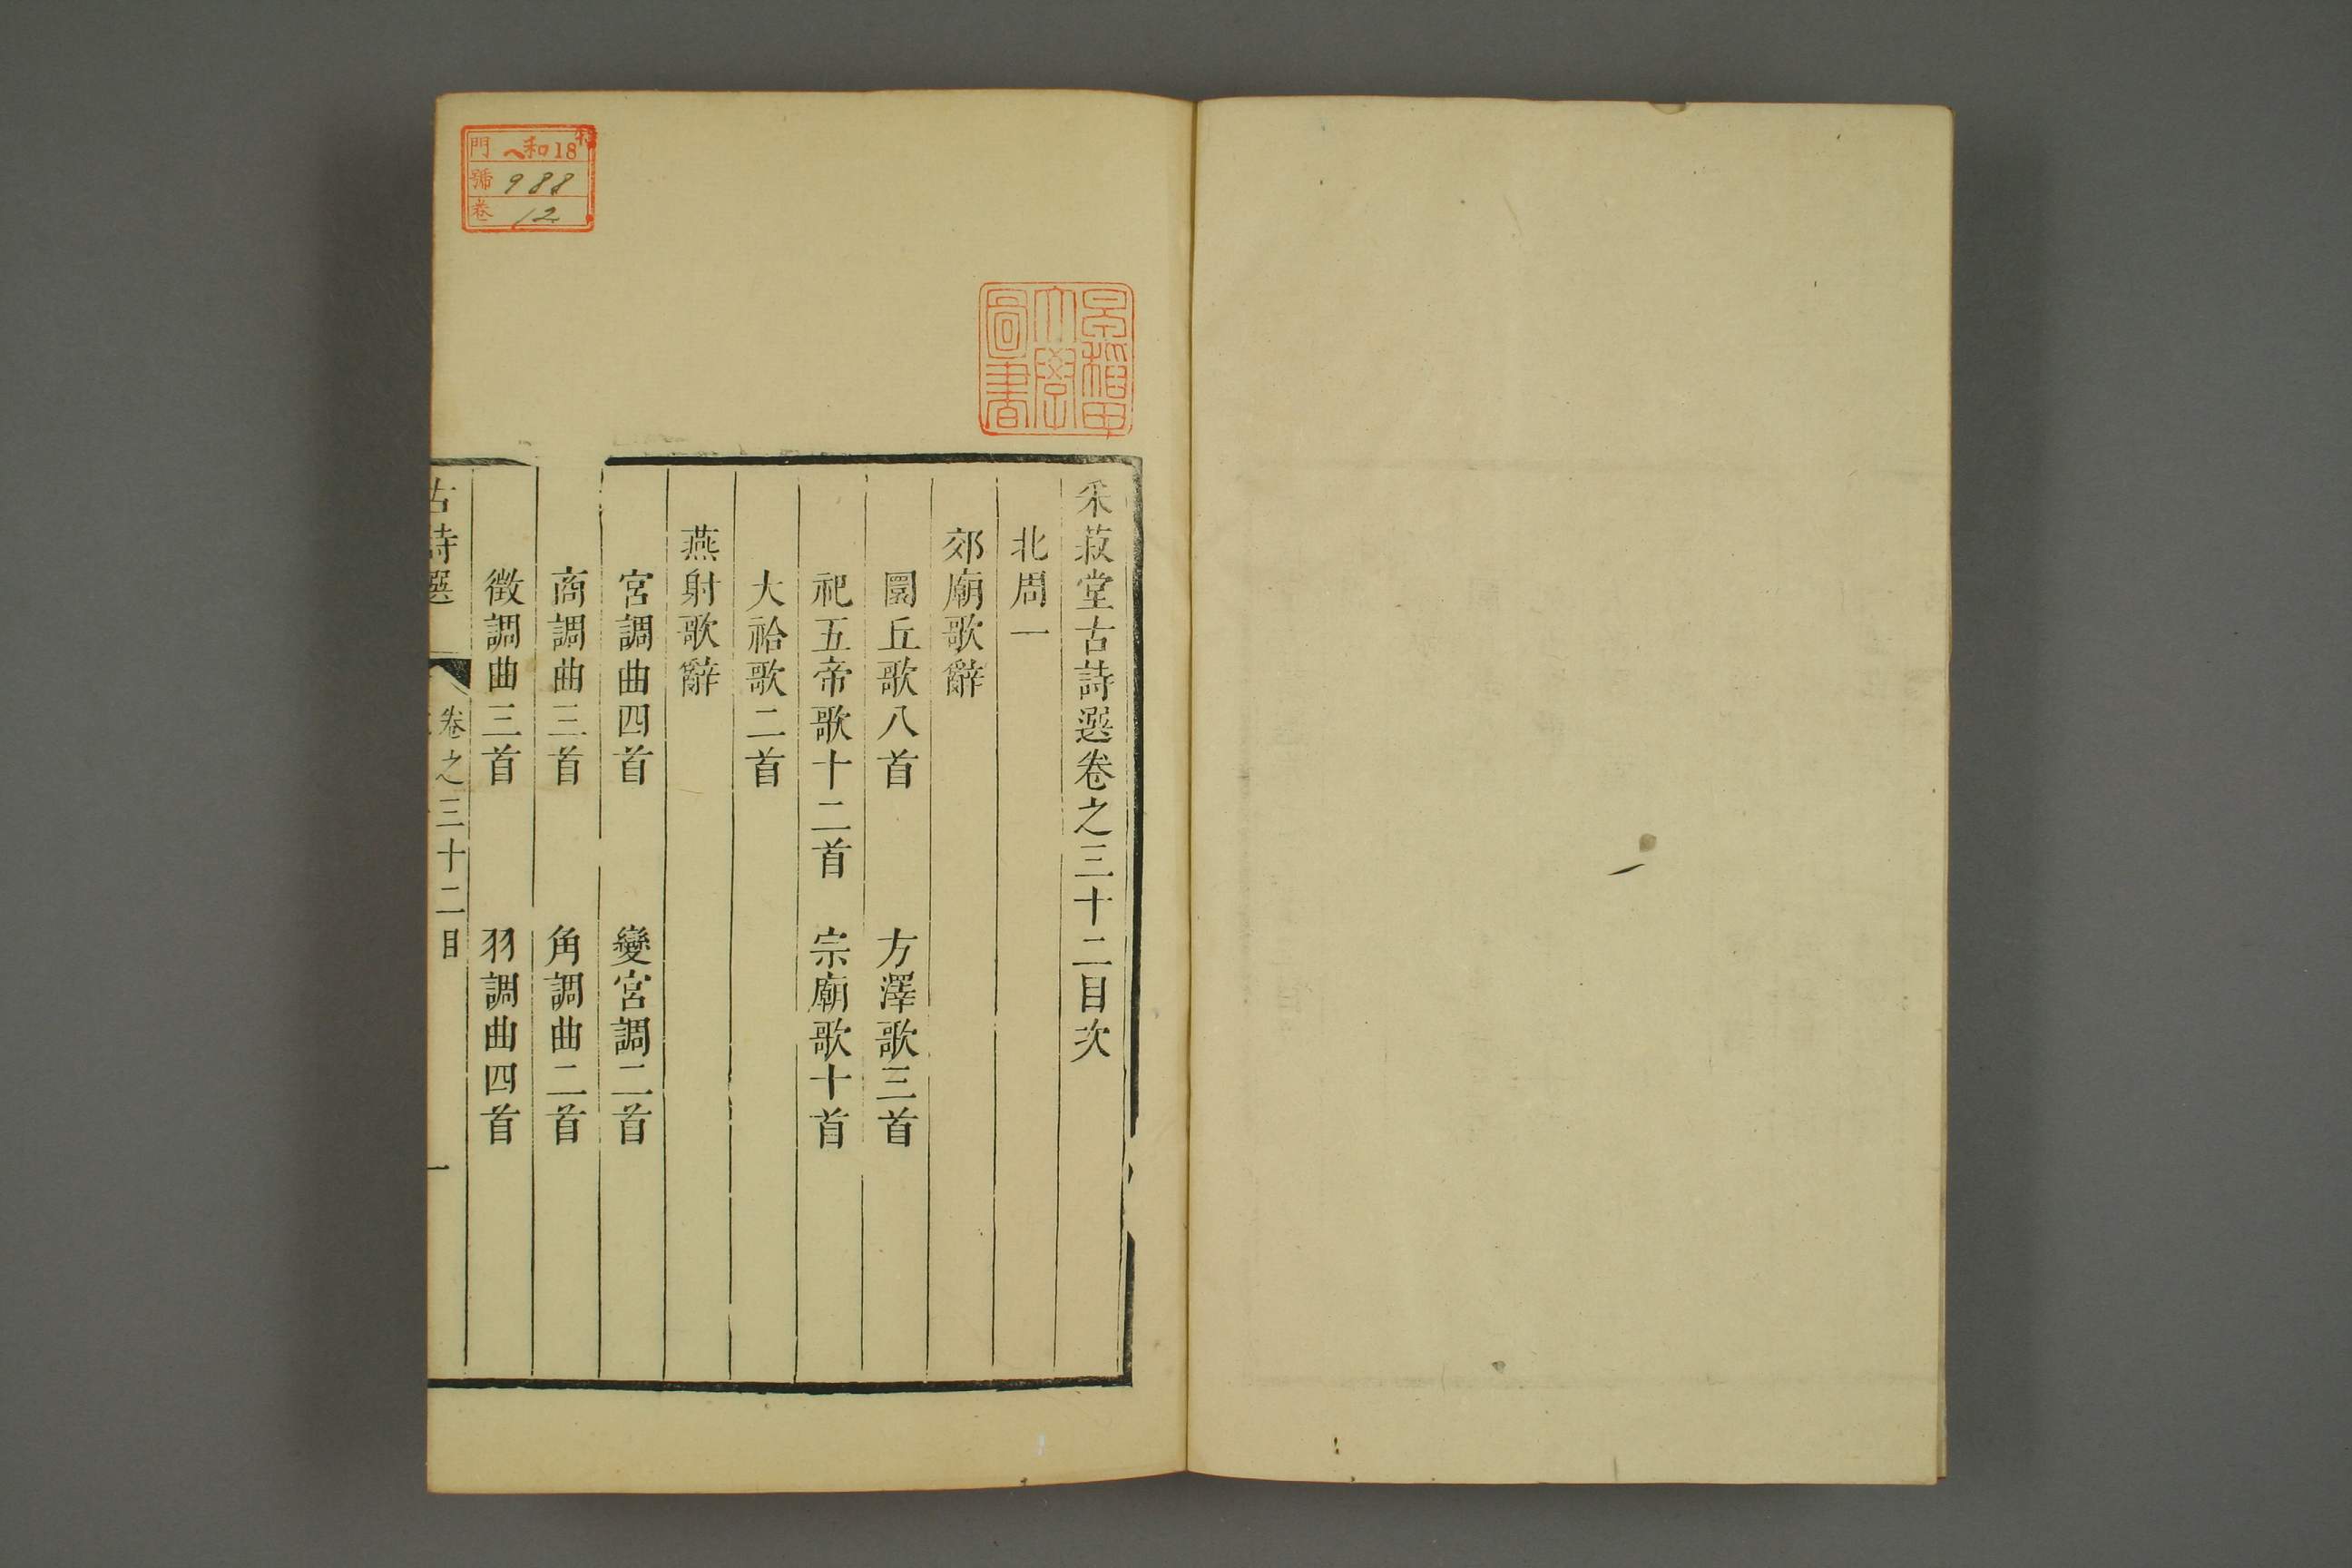 采菽堂古詩選卷之三十二目次
北周一
郊廟歌辭
圜丘歌八首 方澤歌三首
祀五帝歌十二首 宗廟歌十首
大祫歌二首
燕射歌辭
宮調曲四首 變宮調二首
商調曲三首 角調曲二首
徵調曲三首 羽調曲四首
古詩選 卷之三十二目 一
早稲田大學圖書
特
門 ヘ和18
號 988
卷 12